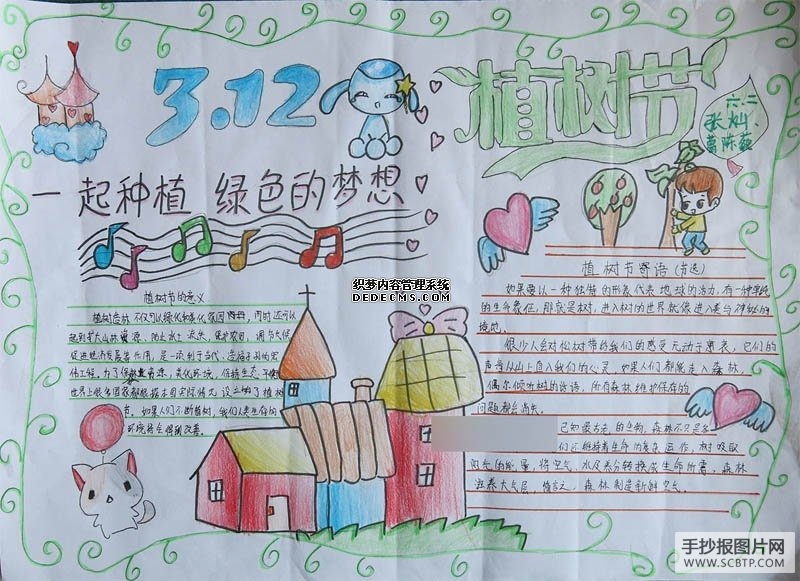 3.12
植树节
六.二
张灿
葛陈薇
一起种植 绿色的梦想
织梦内容管理系统
DEDECMS.COM
植树节的意义
植树造林不仅可以绿化和美化家园，同时还可以
起到扩大山林资源、防止水土流失、保护农田、调节气候
促进经济发展等作用，是一项利于当代、造福子孙的宏
伟工程。为了保护林业资源、美化环境、保持生态平衡
世界上很多国家都根据本国实际情况设立了植树
节。如果人们不断植树，我们人类生存的
环境将会得到改善。
植树节寄语（节选）
如果要以一种独特的形象代表地球的活力，有一种单纯
的生命象征，那就是树，进入树的世界就像进入美与神秘的
境地。
很少人会对松树带给我们的感受无动于衷，它们的
声音从山上直入我们的心灵，如果人们都能走入森林，
偶尔倾听树的话语，所有森林维护保存的
问题都会消失。
已知最古老的生物，森林不只是
们还维持着生命的复杂运作，树吸取
阳光的能量，将空气、水及养分转换成生命所需，森林
滋养大气层，简言之，森林制造新鲜空气。
手抄报图片网
WWW.SCBTP.COM